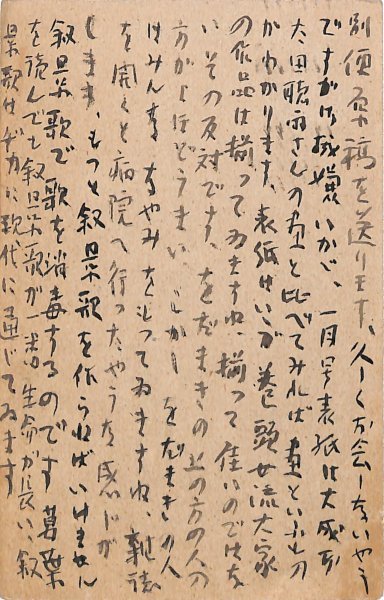 別便原稿を送ります、久しくお会しないやう
ですが御機嫌いかゞ、一月号表紙は大成功
太田聴雨さんの畫と比べてみれば畫といふもの
がわかります、表紙はいゝが巻頭女流大家
の作品は揃つてゐますね、揃つて佳いのではな
いその反対です、をだまきの上の方の人の
方がよほどうまい、しかし をだまきの人
はみんな なやみをもつてゐますね、雑誌
を開くと病院へ行つたやうな感じが
します、もつと叙景歌を作らねばいけません
叙景歌で歌を消毒するのです 萬葉
を読んでも叙景歌が一番生命が長い、叙
景歌はヂカに現代に通じてゐます